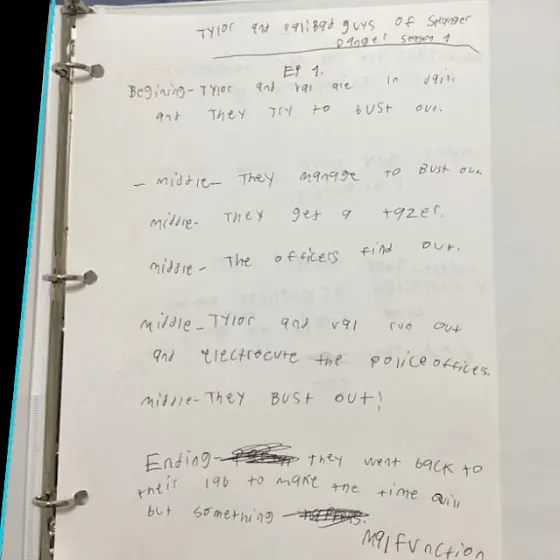 TYlor and val(bad guys of Stranger
Danger season 1
EP 1.
Begining- TYlor and val are in jail.
and They try to bust out.
- middle- They manage to Bust out.
middle- They get a tazer.
middle- The officers find out.
middle- TYlor and val run out
and electrocute the police offices.
middle- They BUSt OUt!
Ending- they went back to
their lab to make the time
but something
malfunction